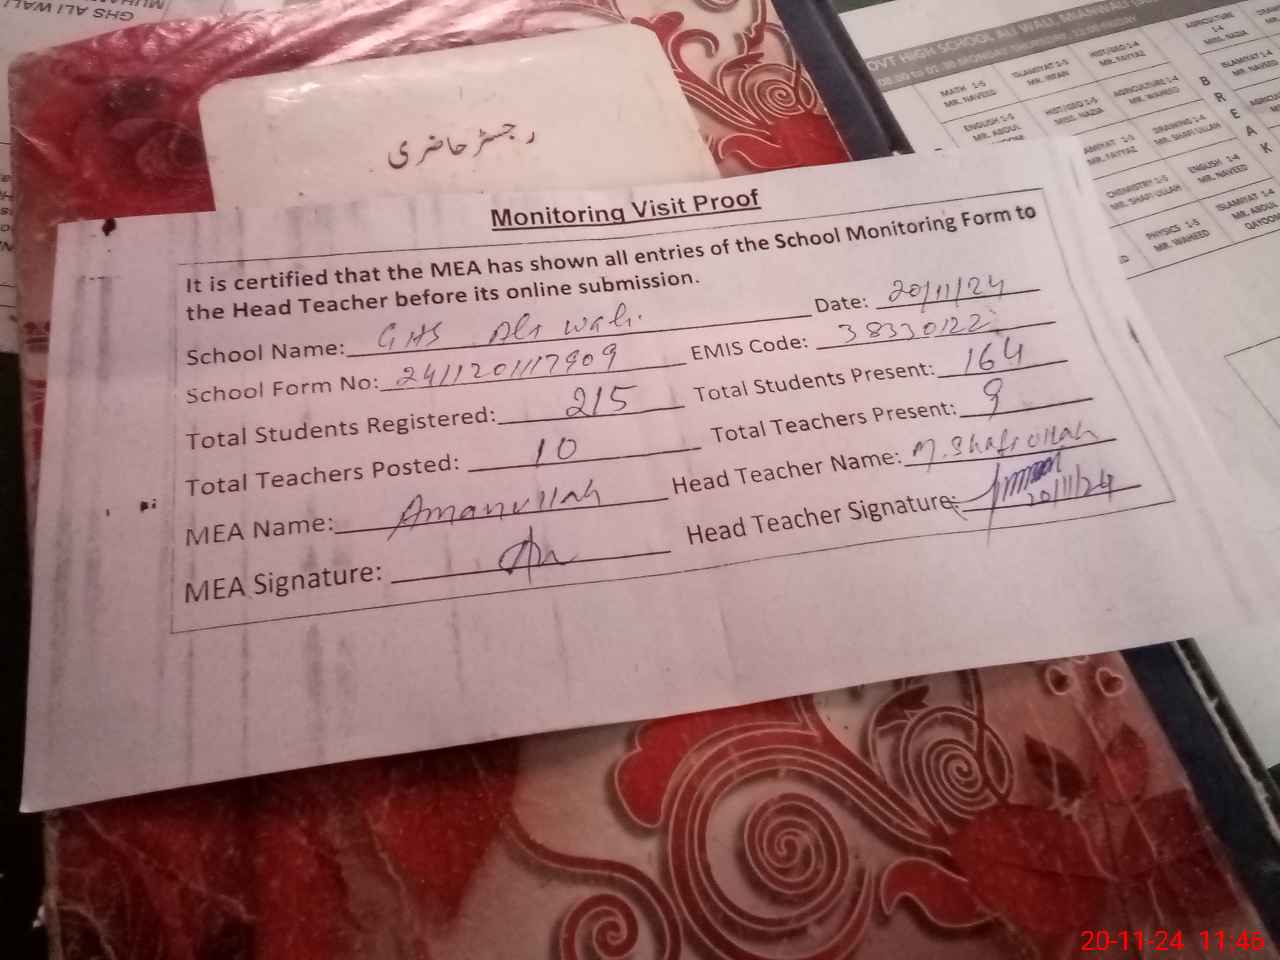 GHS ALI WALI
رجسٹر حاضری
GOVT HIGH SCHOOL ALI WALI, MIANWALI
08:30 to 01:30 MONDAY
MATH 1-5
MR. NAVEED
ISLAMIYAT 1-5
MR. IRFAN
HIST/GEO 1-4
MR. FAYYAZ
AGRICULTURE
1-4
MISS. NADIA
ENGLISH 1-5
MR. ABDUL
HIST/GEO 1-5
MISS NADIA
AGRICULTURE 1-4
MR. WAHEED
ISLAMIYAT 1-4
MR. NAVEED
MR. FAYYAZ
DRAWING 1-4
MR. SHAFI ULLAH
BREAK
CHEMISTRY 1-5
MR. SHAFI ULLAH
ENGLISH 1-4
MR. NAVEED
PHYSICS 1-5
MR. WAHEED
ISLAMIYAT 1-4
MR. ABDUL
QAYOOM
Monitoring Visit Proof
It is certified that the MEA has shown all entries of the School Monitoring Form to
the Head Teacher before its online submission.
School Name: GHS Ali Wali. Date: 20/11/24
School Form No: 2411201117909 EMIS Code: 38330122
Total Students Registered: 215 Total Students Present: 164
Total Teachers Posted: 10 Total Teachers Present: 9
MEA Name: Amanullah Head Teacher Name: M. Shafi ullah
MEA Signature: Head Teacher Signature: 20/11/24
20-11-24 11:46